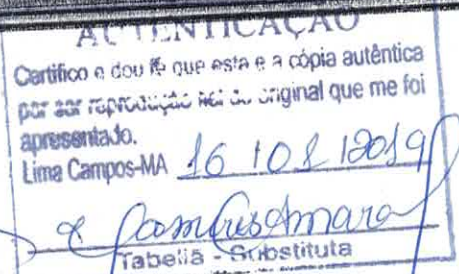 AUTENTICAÇÃO
Certifico e dou fé que esta e a cópia autêntica
por ser reprodução fiel do original que me foi
apresentado.
Lima Campos-MA 16 / 01 / 2019
Tabeliã - Substituta